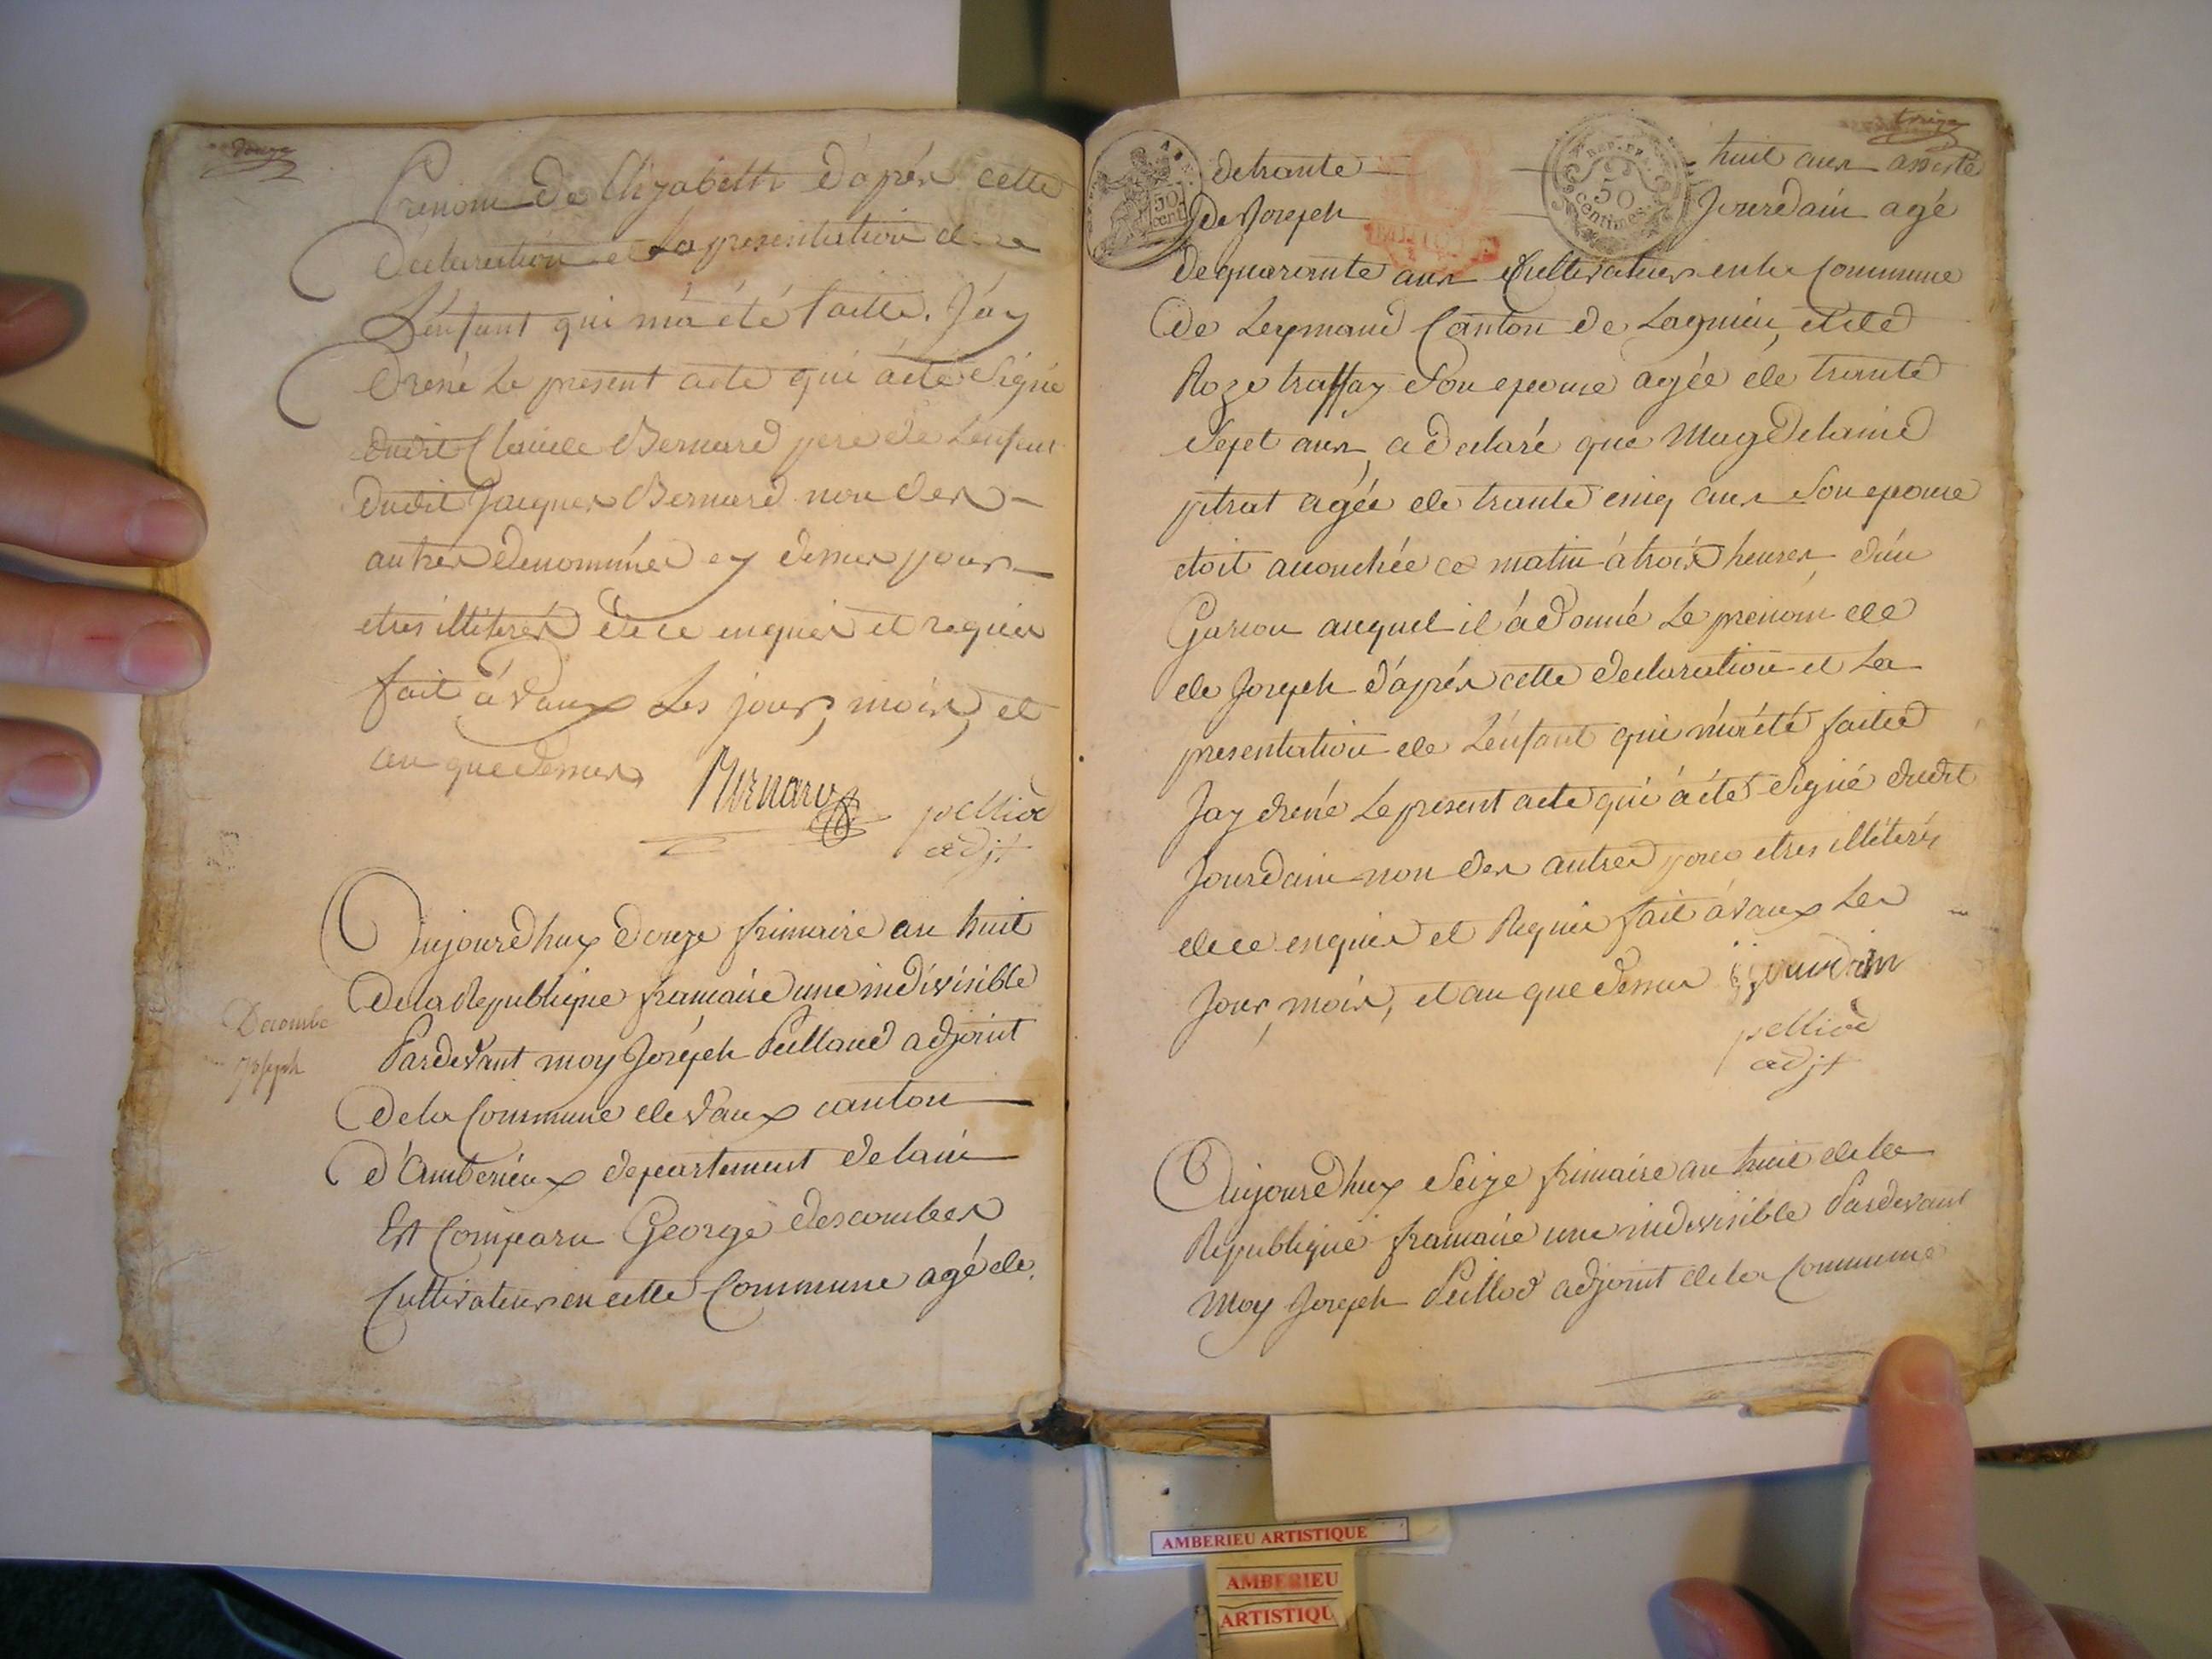 douze
Prenom de Elizabeth d'aprés cette
Declaration et La presentation de
L'enfant qui m'a été faitte. J'ay
Dressé le present acte qui a été Signé
dudit Claude Bernard pere de L'enfant
dudit Jacques Bernard non des
autres denommés cy dessus pour
etres illiterés de ce enquis et requis
fait à Vaux Les jour, mois, et
an que dessus
Bernard
pelliod
adjt
Decombe
Joseph
Aujourdhuy douze frimaire an huit
De la Republique francaise une indivisible
Pardevant moy Joseph Pelloud adjoint
De la Commune de Vaux canton
d'Amberieux departement de lain
Est Comparu George descombes
Cultivateur en cette Commune agé de
treize
de trante huit ans assisté
de Joseph Jourdain agé
50 cent
REP. FRA.
50
centimes
de quarante ans Cultivateur en la Commune
De Leymand Canton de Lagnieu, et de
Roze traffay Son epouse agée de trante
Sept ans, a declaré que Magdelaine
pitrat agée de trante cinq ans Son epouse
etoit accouchée ce matin à trois heures, d'un
Garcon auquel il à donné Le prenom de
de Joseph d'aprés cette declaration et La
presentation de L'enfant qui m'a été faite
Jay dressé Le present acte qui à été Signé dudit
Jourdain non des autres pour etres illiterés
de ce enquis et Requis fait à Vaux Les
Jour, mois, et an que dessus j jourdain
pelliod
adjt
Aujourdhuy Seize frimaire an huit de la
Republique francaise une indivisible Pardevant
Moy Joseph Pellod adjoint de la Commune
AMBERIEU ARTISTIQUE
AMBERIEU
ARTISTIQU